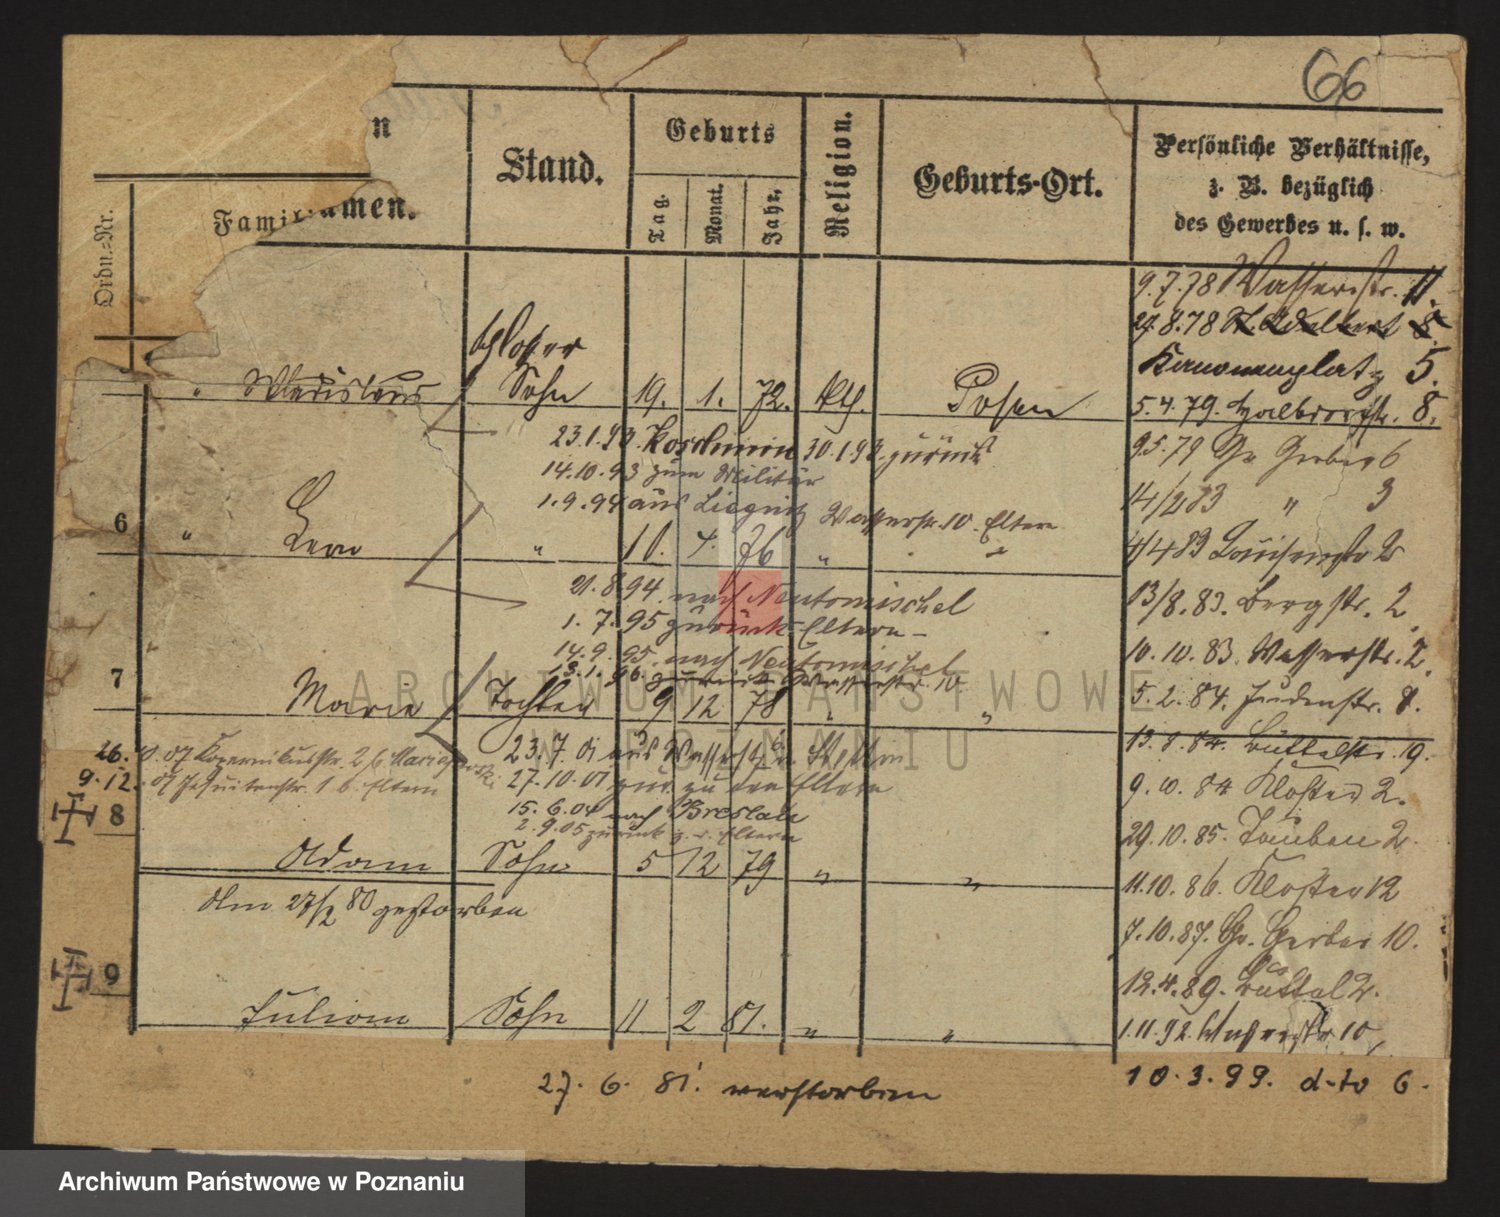 66
n
Familiennamen.
Ordn.=Nr.
Stand.
Geburts
Tag.
Monat.
Jahr.
Religion.
Geburts-Ort.
Persönliche Verhältnisse,
z. B. bezüglich
des Gewerbes u. s. w.
9.7.78 Wasserstr. 11.
27.8.78 St. Adalbert 8
Kanonenplatz 5.
5.4.79. Halbdorfstr. 8.
9.5.79 Gr. Gerber 6
14/2 83 " 3
4/4 83 Louisenstr 2
13/8. 83. Bergstr. 2.
10.10.83. Wasserstr. 2.
5.2.84. Judenstr. 8.
13.8.84. Büttelstr. 19.
9.10.84 Kloster 2.
29.10.85. Tauben 2.
11.10.86. Kloster 12
7.10.87. Gr. Gerber 10.
12.4.89. Büttel 2.
1.11.92. Wasserstr 10
10.3.99. d-to 6.
Schlosser
" Wladislaus Sohn 19. 1. 72. kth. Posen
23.1.93. Koschmin 30.1.93. zurück
14.10.93 zum Militär
1.9.94 aus Liegnitz Wasserstr. 10. Eltern
6 " Leo " 10. 4. 76 " "
21.8.94. nach Neutomischel
1.7.95 zurück Eltern -
14.9.95. nach Neutomischel
13.1.96. zurück Wasserstr. 10
7 Marie Tochter 9 12 78 " "
23.7.01 aus Wasserstr. 6 n. Stettin
27.10.01 zur. zu den Eltern
26. 9. 07 Kopernikusstr. 2 b.
9.12.07 Jesuitenstr. 1 b. Eltern
15.6.04 nach Breslau
2.9.05 zurück z. d. Eltern
8 Adam Sohn 5 12 79 " "
Am 27/2 80 gestorben
9 Julian Sohn 11 2 81. " "
27. 6. 81. verstorben
ARCHIWUM PAŃSTWOWE
W POZNANIU
Archiwum Państwowe w Poznaniu